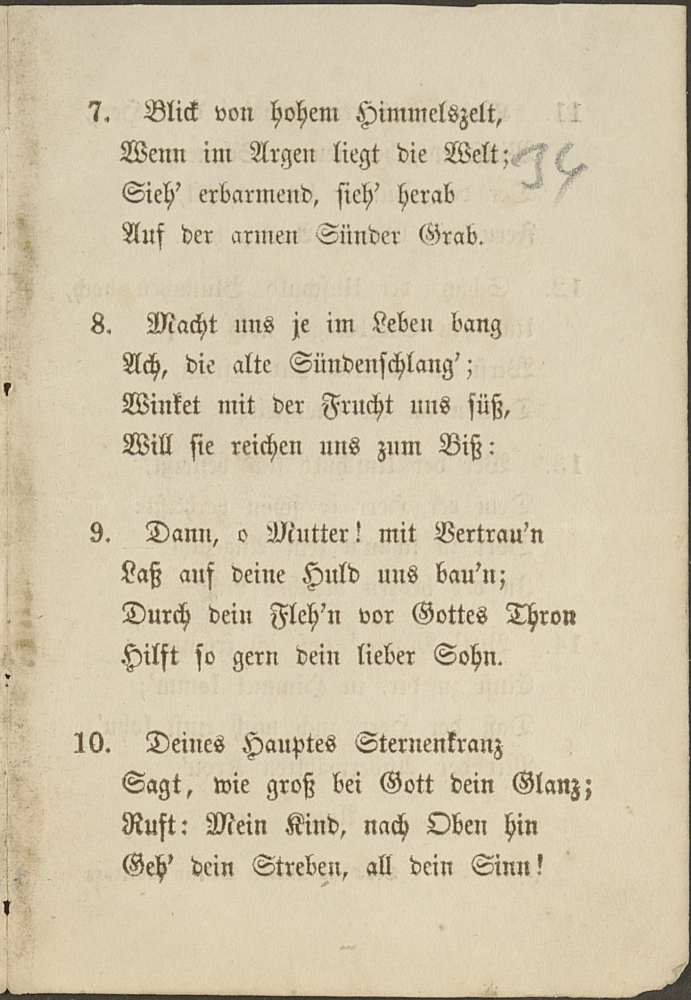 7. Blick von hohem Himmelszelt,
Wenn im Argen liegt die Welt;
34
Sieh' erbarmend, sieh' herab
Auf der armen Sünder Grab.
8. Macht uns je im Leben bang
Ach, die alte Sündenschlang';
Winket mit der Frucht uns süß,
Will sie reichen uns zum Biß:
9. Dann, o Mutter! mit Vertrau'n
Laß auf deine Huld uns bau'n;
Durch dein Fleh'n vor Gottes Thron
Hilft so gern dein lieber Sohn.
10. Deines Hauptes Sternenkranz
Sagt, wie groß bei Gott dein Glanz;
Ruft: Mein Kind, nach Oben hin
Geh' dein Streben, all dein Sinn!